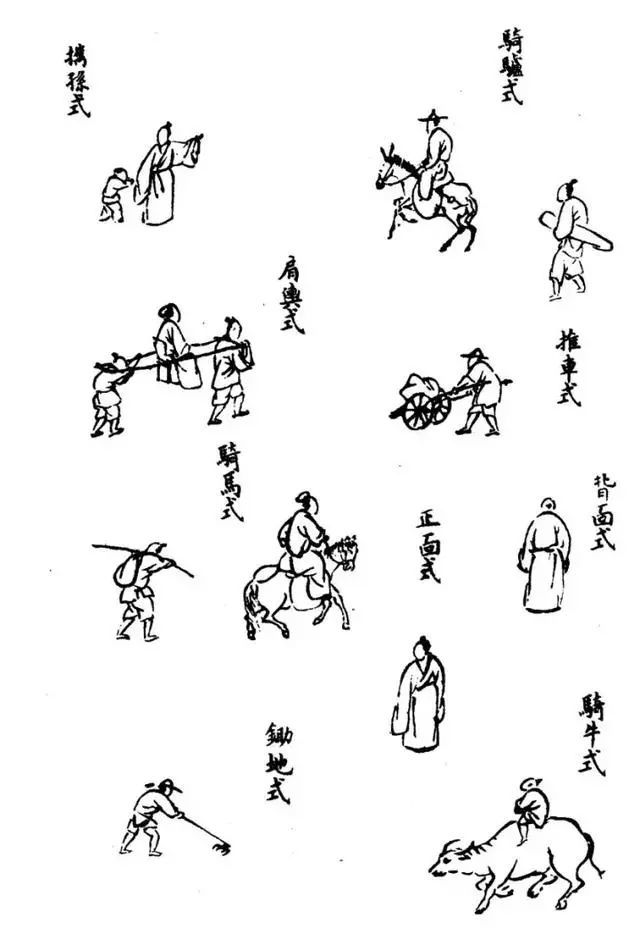 騎驢式
推車式
背面式
騎牛式
正面式
肩輿式
騎馬式
鋤地式
攜孫式